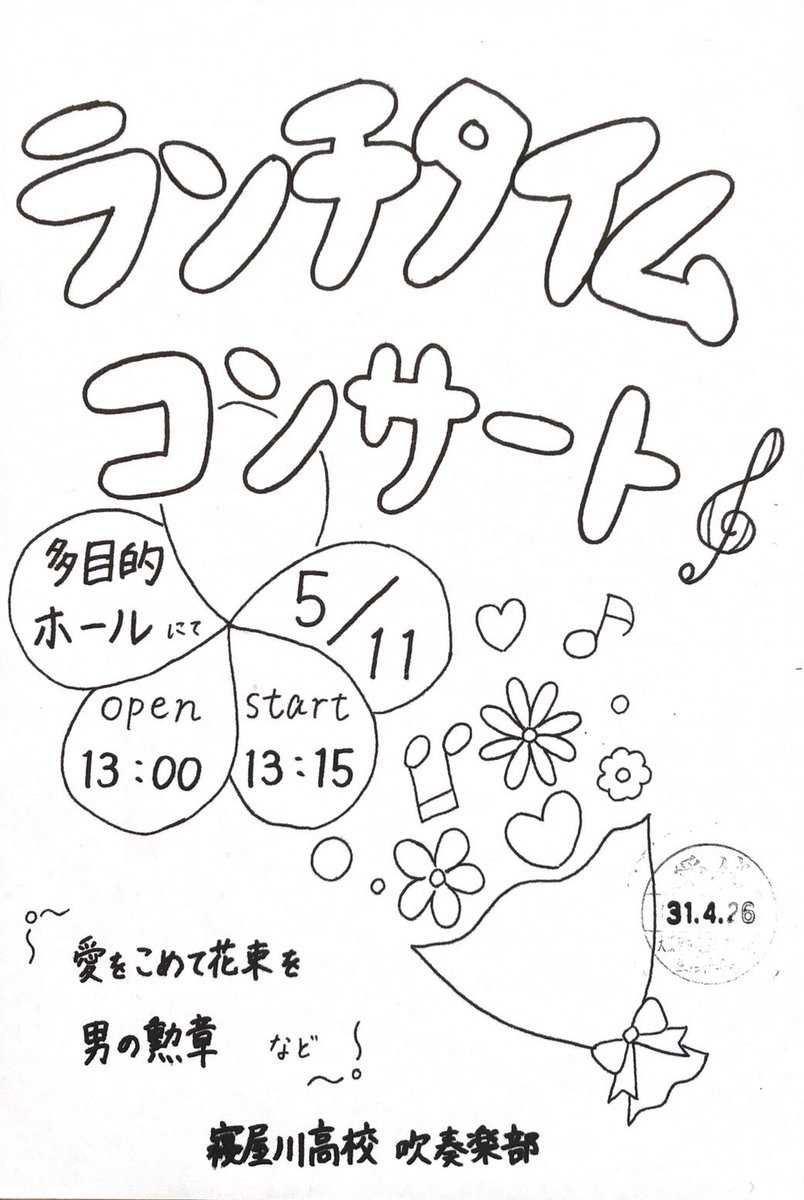 ランチタイム
コンサート
多目的
ホールにて
5/11
open
13:00
start
13:15
31.4.26
愛をこめて花束を
男の勲章 など
寝屋川高校 吹奏楽部